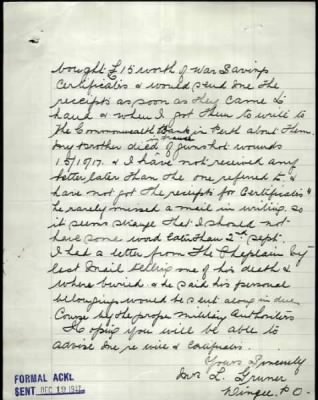 bought £15 worth of War Savings
Certificates & would send me the
receipts as soon as they came to
hand & when I got them to write to
the Commonwealth Bank in Perth about them.
My brother died of gunshot wounds
in France
15/10/17. & I have not received any
letter later than the one referred to &
have not got the receipts for Certificates &
he rarely missed a mail in writing so
it seems strange that I should not
have some word later than 2nd Sept.
I had a letter from the Chaplain by
last mail telling me of his death &
where buried & he said his personal
belongings would be sent along in due
course by the proper military Authorities
Hoping you will be able to
advise me re will & certificates.
Yours Sincerely
Mrs L. Gruner
P.O.
FORMAL ACKL
SENT DEC 19 1917